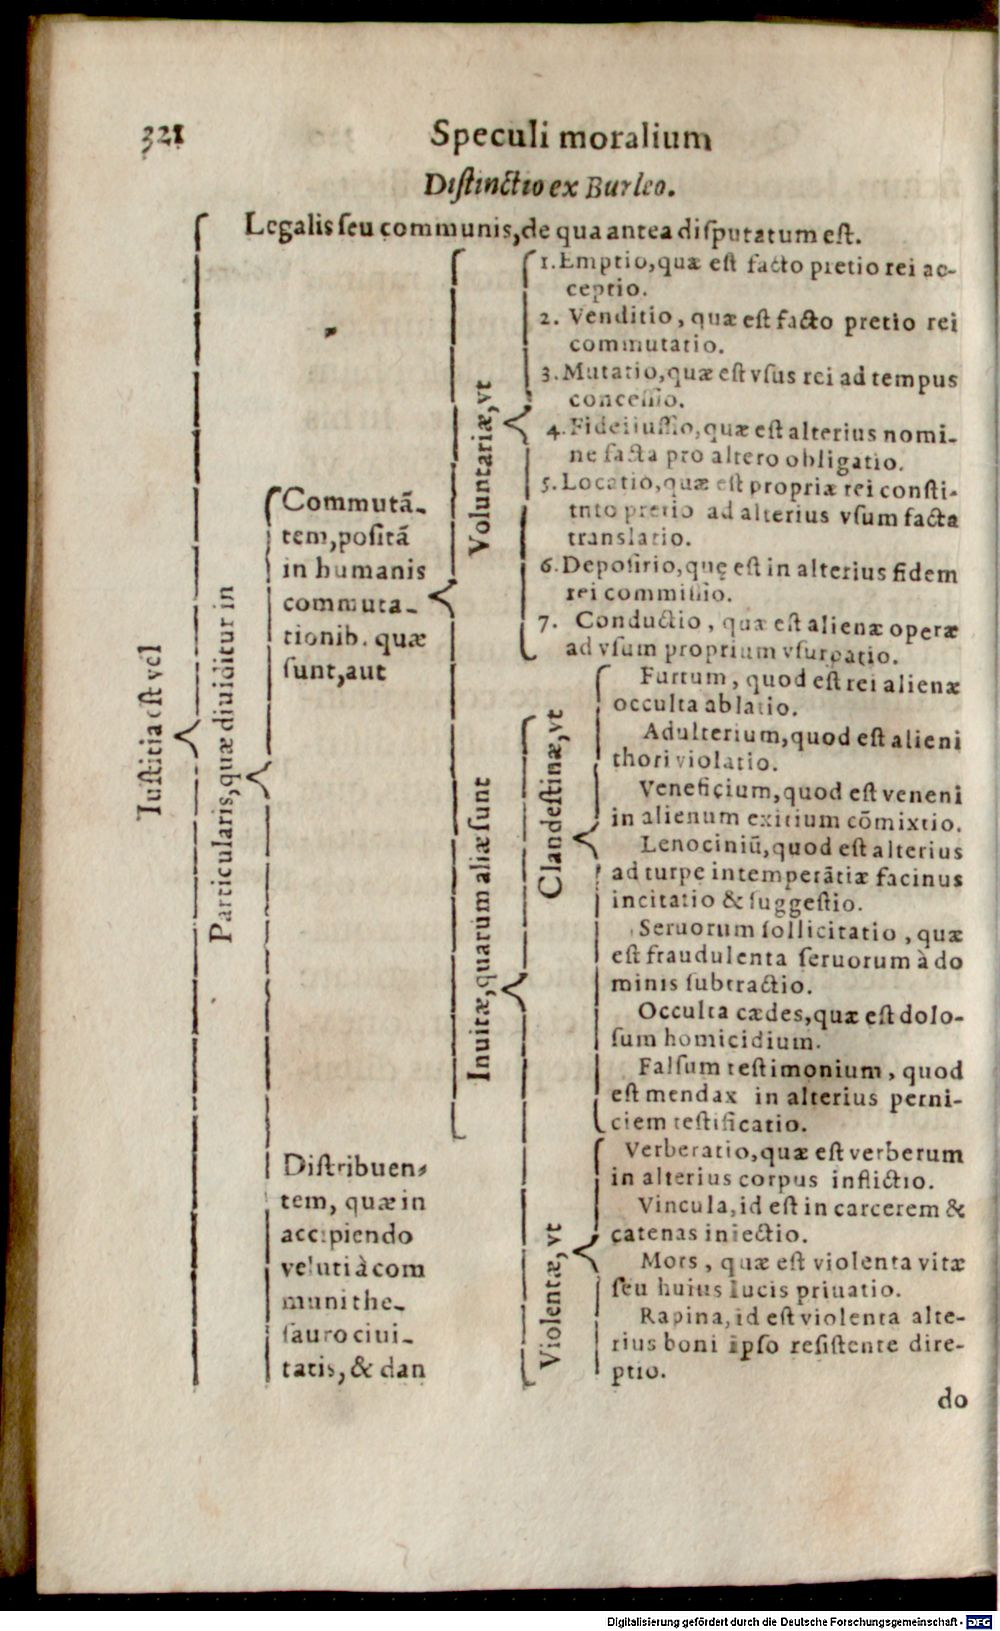 321
Speculi moralium
Distinctio ex Burleo.
Legalis seu communis, de qua antea disputatum est.
Iustitia est vel
Particularis, quæ diuiditur in
Commutā-
tem, positā
in humanis
commuta-
tionib. quæ
sunt, aut
Voluntariæ, vt
1. Emptio, quæ est facto pretio rei ac-
ceptio.
2. Venditio, quæ est facto pretio rei
commutatio.
3. Mutatio, quæ est vsus rei ad tempus
concessio.
4. Fideiiussio, quæ est alterius nomi-
ne facta pro altero obligatio.
5. Locatio, quæ est propriæ rei consti-
tnto pretio ad alterius vsum facta
translatio.
6. Depositio, quę est in alterius fidem
rei commissio.
7. Conductio, quæ est alienæ operæ
ad vsum proprium vsurpatio.
Inuitæ, quarum aliæ sunt
Clandestinæ, vt
Furtum, quod est rei alienæ
occulta ablatio.
Adulterium, quod est alieni
thori violatio.
Veneficium, quod est veneni
in alienum exitium cōmixtio.
Lenociniū, quod est alterius
ad turpe intemperātiæ facinus
incitatio & suggestio.
Seruorum sollicitatio, quæ
est fraudulenta seruorum à do
minis subtractio.
Occulta cædes, quæ est dolo-
sum homicidium.
Falsum testimonium, quod
est mendax in alterius perni-
ciem testificatio.
Violentæ, vt
Verberatio, quæ est verberum
in alterius corpus inflictio.
Vincula, id est in carcerem &
catenas iniectio.
Mors, quæ est violenta vitæ
seu huius lucis priuatio.
Rapina, id est violenta alte-
rius boni ipso resistente dire-
ptio.
Distribuen-
tem, quæ in
accipiendo
veluti à com
muni the-
sauro ciui-
tatis, & dan
do
Digitalisierung gefördert durch die Deutsche Forschungsgemeinschaft - DFG